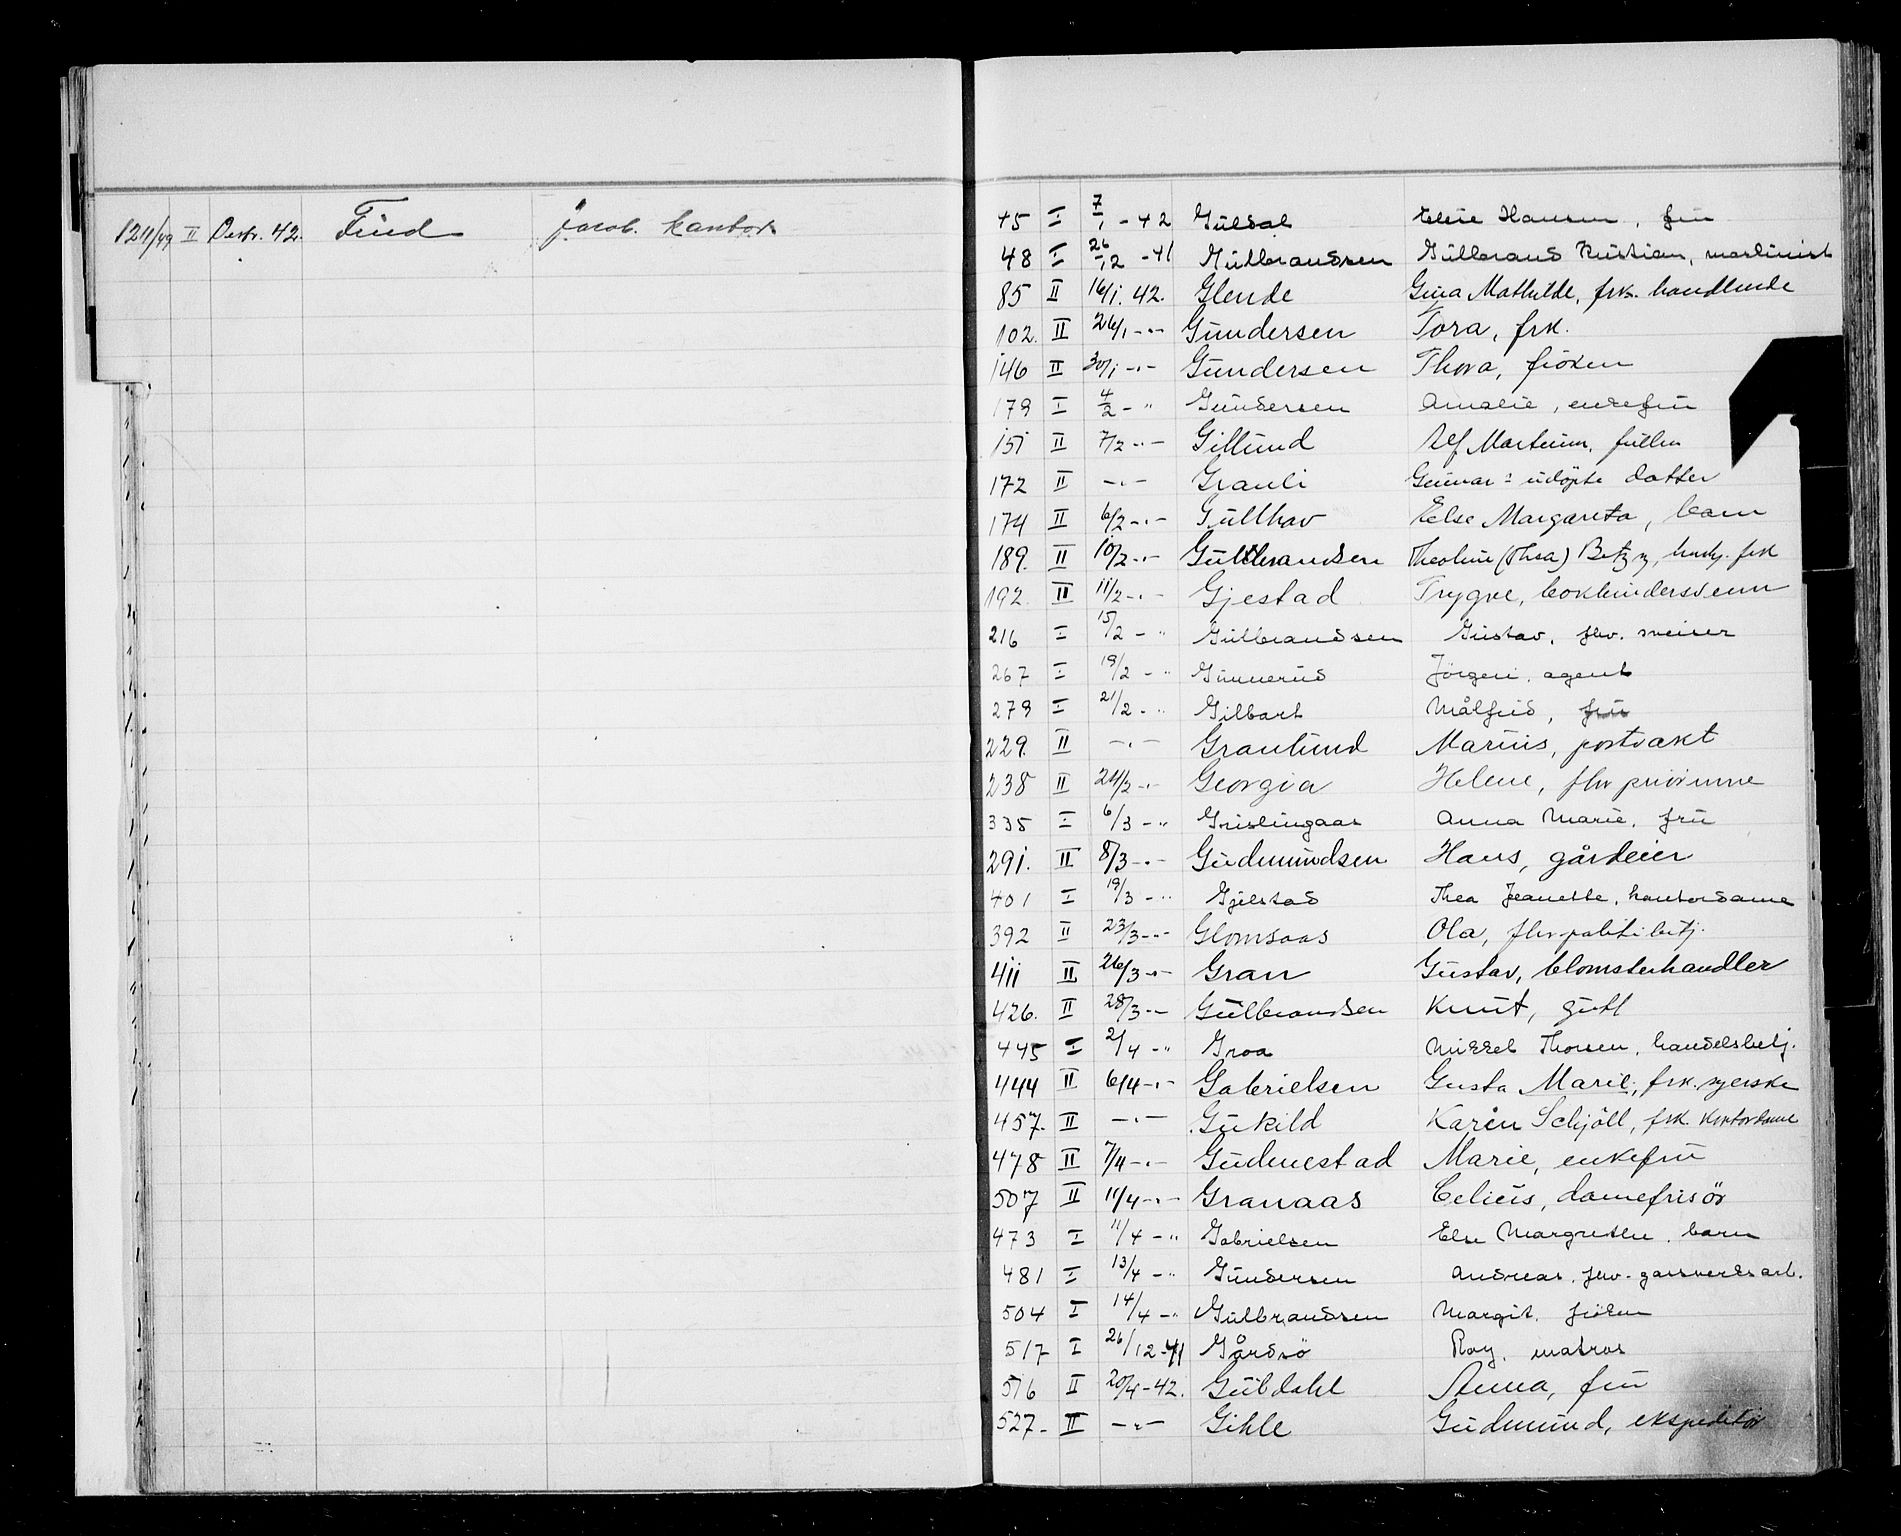 1211/49 II Desbr. 42. Find Jacob. kantor
45 I 7/1 - 42 Guldal Elise Hansen, fru
48 I 26/12 - 41 Gulbrandsen Gulbrand Kristian, maskinist
85 II 16/1. 42. Glende Gina Mathilde, frk. handlende
102. II 26/1 -"- Gundersen Tora, frk.
146 II 30/1 -"- Gundersen Thora, fröken
179 I 4/2 - " Gundersen Amalie, enkefru
151 II 7/2 -"- Gillund Alf Martinius, fullm
172 II -"- Granli Gunnar's udöpte datter
174 II 6/2 -"- Gullhav Else Margareta, barn
189. II 10/2 -"- Gulbrandsen Theoline (Thea) Betzy, hush. frk
192 II 11/2 -"- Gjestad Trygve, bokbindersvenn
216 I 15/2 - " Gulbrandsen Gustav, fhv. sveiser
267 I 19/2 - " Gunnerud Jörgen, agent
279 I 21/2 - " Gilbart Målfrid, fru
229. II -"- Granlund Marius, postvakt
238 II 24/2 -"- Georgia Helene, fhv priorinne
335 I 6/3 - " Grislingaas Anna Marie, fru
291. II 8/3 -"- Gudmundsen Hans, gårdeier
401 I 19/3 - " Gjelstad Thea Jeanette, kontordame
392 II 23/3 -"- Glomsaas Ola, fhv politibetj.
411 II 26/3 -"- Gran Gustav, blomsterhandler
426. II 28/3 -"- Gulbrandsen Knut, gutt
445 I 2/4 - " Groa Mikkel Thorsen, handelsbetj.
444 II 6/4 -"- Gabrielsen Gusta Marie, frk. syerske
457. II -"- Gukild Karen Schjöll, frk. kontordame
478 II 7/4 -"- Gudmestad Marie, enkefru
507 II 11/4 -"- Granaas Celius, damefrisör
473 I 11/4 - " Gabrielsen Else Margrethe, barn
481 I 13/4 - " Gundersen Andreas, fhv. gassverksarb.
504 I 14/4 - " Gulbrandsen Margit, fröken
517 I 26/12 - 41 Gårdsö Roy, matros
516 II 20/4 - 42. Guldahl Anna, fru
527- II -"- Gihle Gudmund, ekspeditör